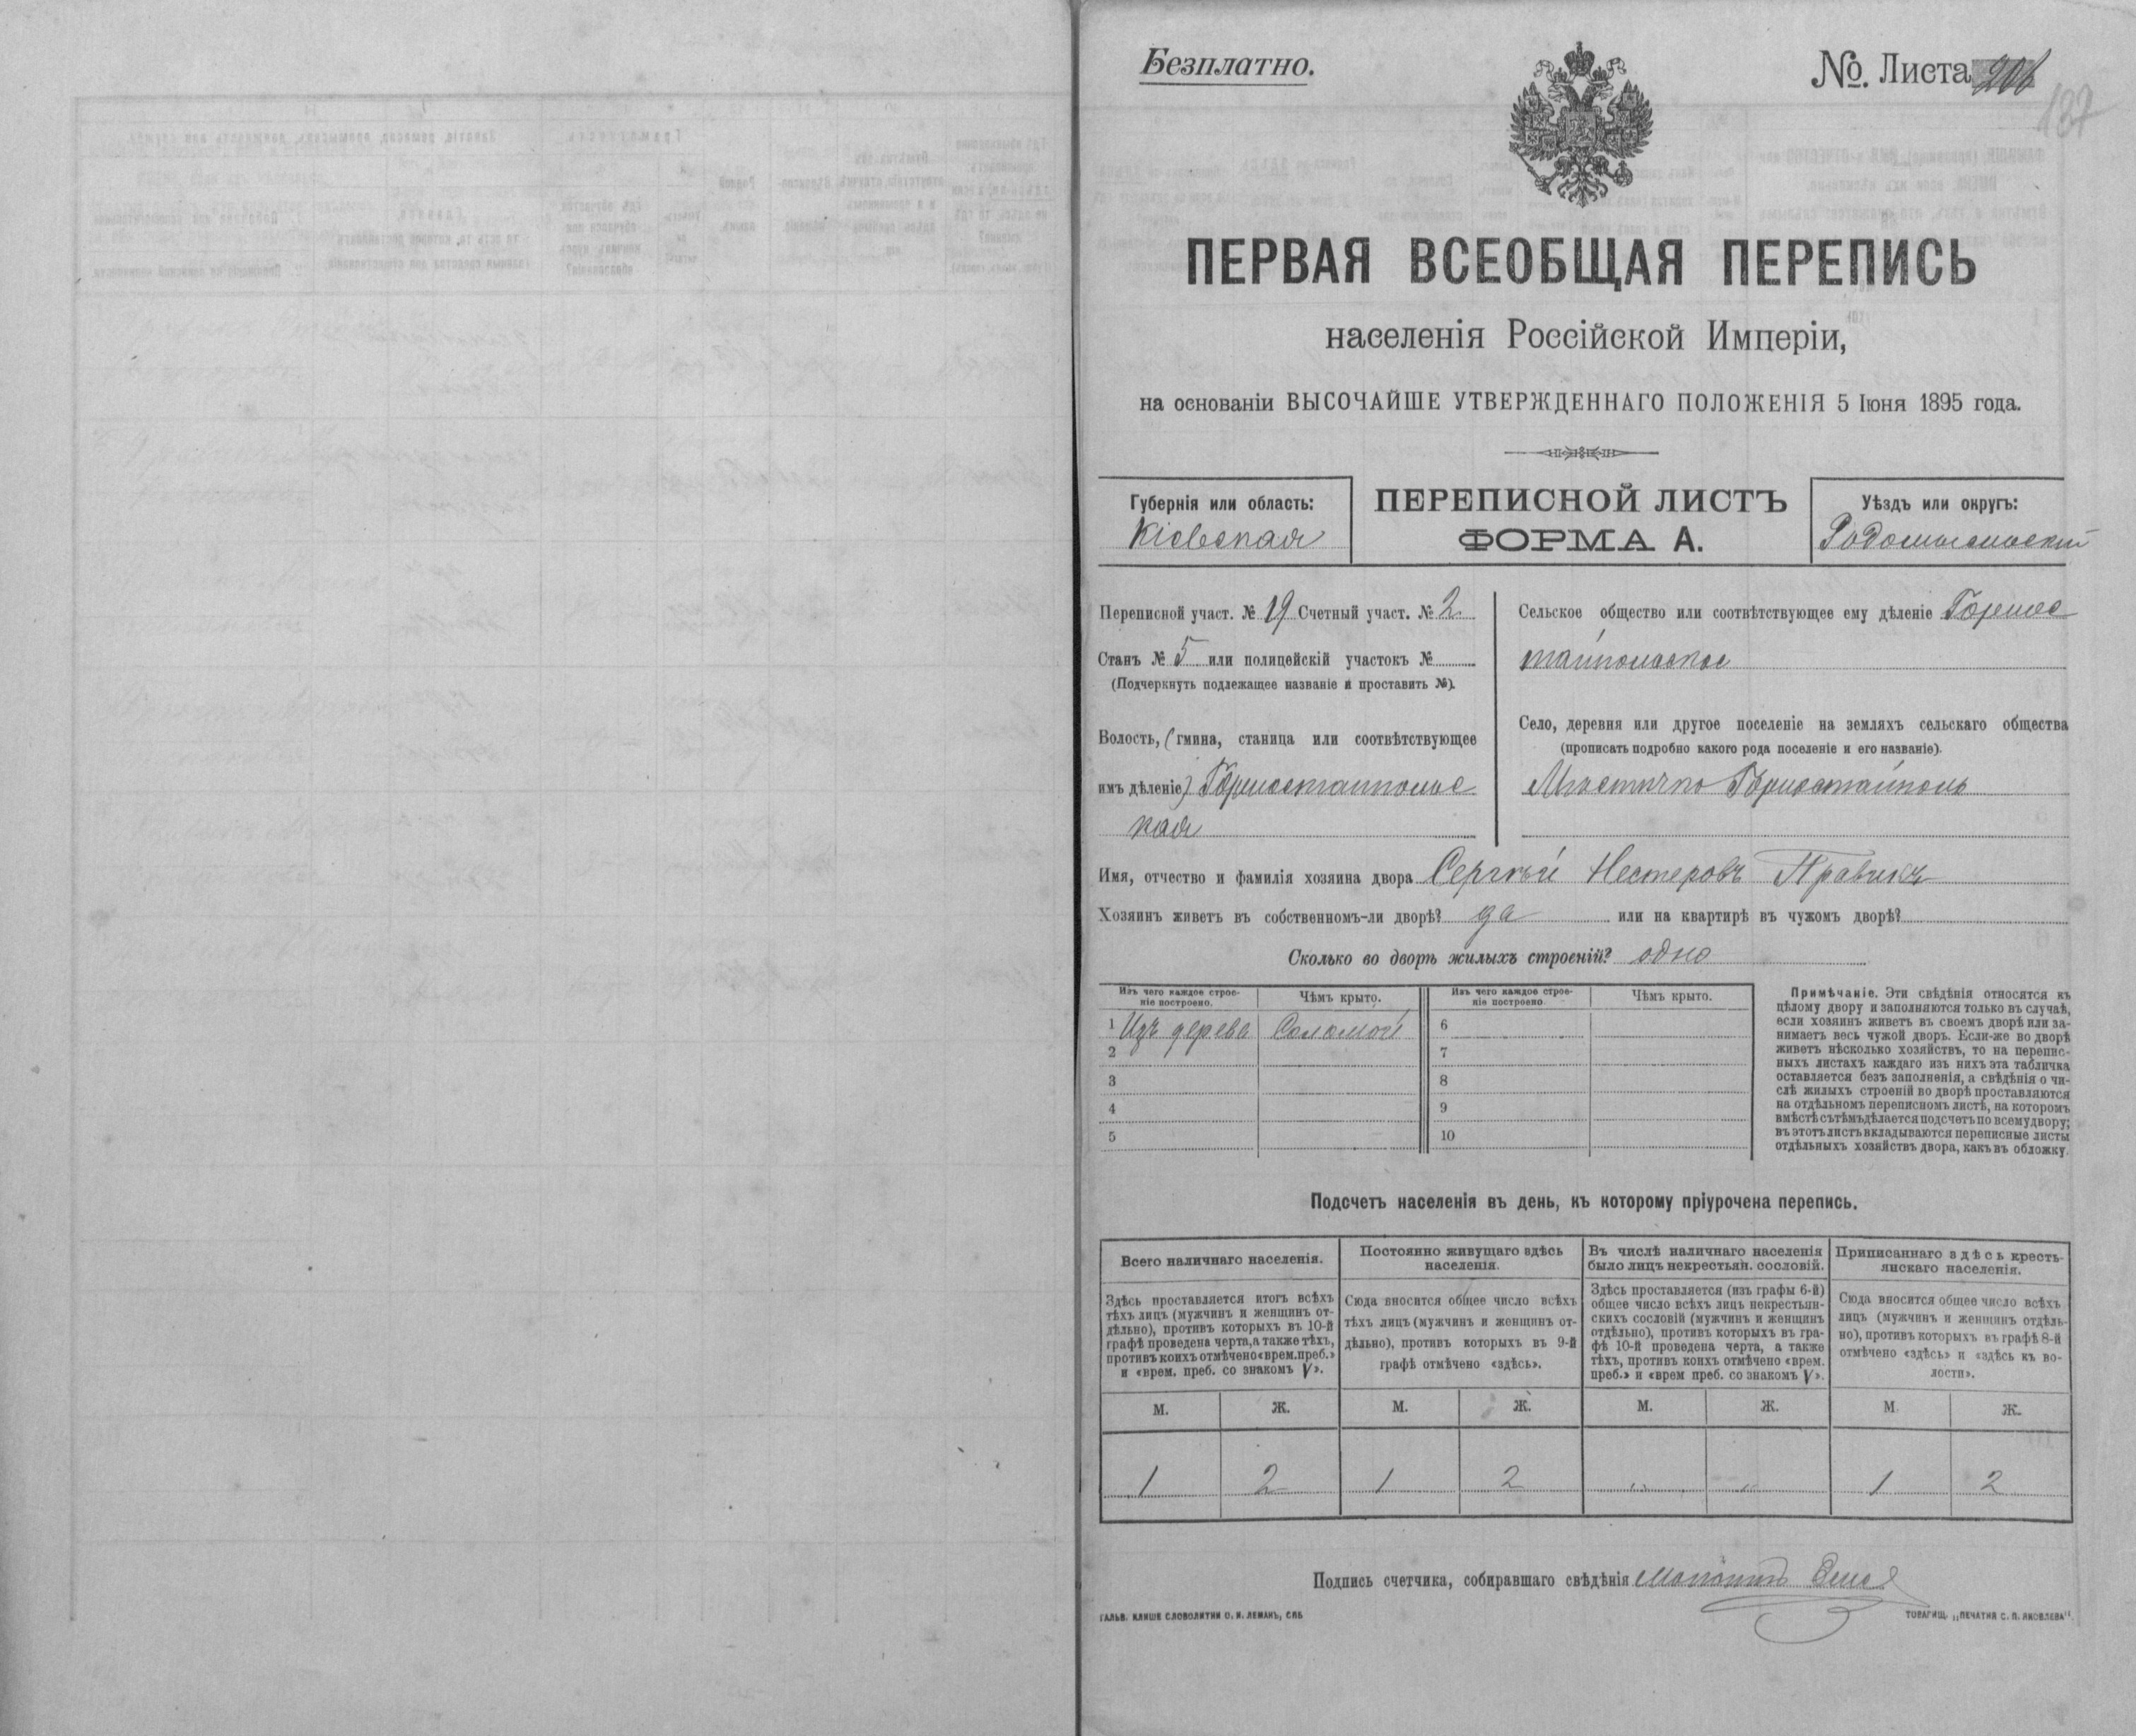 Безплатно.
№. Листа 206
187
ПЕРВАЯ ВСЕОБЩАЯ ПЕРЕПИСЬ
населенія Россійской Имперіи,
на основаніи ВЫСОЧАЙШЕ УТВЕРЖДЕННАГО ПОЛОЖЕНІЯ 5 Іюня 1895 года.
Губернія или область:
Кіевская
ПЕРЕПИСНОЙ ЛИСТЪ
ФОРМА А.
Уѣздъ или округъ:
Радомысльскій
Переписной участ. № 19 Счетный участ. № 2
Станъ № 5 или полицейскій участокъ №
(Подчеркнуть подлежащее названіе и проставить №).
Волость, (гмина, станица или соотвѣтствующее
имъ дѣленіе) Горностайпольс
кая
Сельское общество или соотвѣтствующее ему дѣленіе Горнос
тайпольское
Село, деревня или другое поселеніе на земляхъ сельскаго общества
(прописать подробно какого рода поселеніе и его названіе).
Мѣстечко Горностайполь
Имя, отчество и фамилія хозяина двора Сергѣй Нестеровъ Правикъ
Хозяинъ живетъ въ собственномъ-ли дворѣ? да или на квартирѣ въ чужомъ дворѣ?
Сколько во дворѣ жилыхъ строеній? одно
Изъ чего каждое строе-
ніе построено.
Чѣмъ крыто.
Изъ чего каждое строе-
ніе построено
Чѣмъ крыто.
1 Изъ дерева Соломой 6
2 7
3 8
4 9
5 10
Примѣчаніе. Эти свѣдѣнія относятся къ
цѣлому двору и заполняются только въ случаѣ,
если хозяинъ живетъ въ своемъ дворѣ или за-
нимаетъ весь чужой дворъ. Если-же во дворѣ
живетъ нѣсколько хозяйствъ, то на перепис-
ныхъ листахъ каждаго изъ нихъ эта табличка
оставляется безъ заполненія, а свѣдѣнія о чи-
слѣ жилыхъ строеній во дворѣ проставляются
на отдѣльномъ переписномъ листѣ, на которомъ
вмѣстѣ съ тѣмъ дѣлается подсчетъ по всему двору;
въ этотъ листъ вкладываются переписные листы
отдѣльныхъ хозяйствъ двора, какъ въ обложку.
Подсчетъ населенія въ день, къ которому пріурочена перепись.
Всего наличнаго населенія.
Здѣсь проставляется итогъ всѣхъ
тѣхъ лицъ (мужчинъ и женщинъ от-
дѣльно), противъ которыхъ въ 10-й
графѣ проведена черта, а также тѣхъ,
противъ коихъ отмѣчено «врем. преб.»
и «врем. преб. со знакомъ V».
Постоянно живущаго здѣсь
населенія.
Сюда вносится общее число всѣхъ
тѣхъ лицъ (мужчинъ и женщинъ от-
дѣльно), противъ которыхъ въ 9-й
графѣ отмѣчено «здѣсь».
Въ числѣ наличнаго населенія
было лицъ некрестьян. сословій.
Здѣсь проставляется (изъ графы 6-й)
общее число всѣхъ лицъ некрестьян-
скихъ сословій (мужчинъ и женщинъ
отдѣльно), противъ которыхъ въ гра-
фѣ 10-й проведена черта, а также
тѣхъ, противъ коихъ отмѣчено «врем.
преб.» и «врем преб. со знакомъ V».
Приписаннаго здѣсь кресть-
янскаго населенія.
Сюда вносится общее число всѣхъ
лицъ (мужчинъ и женщинъ отдѣль-
но), противъ которыхъ въ графѣ 8-й
отмѣчено «здѣсь» и «здѣсь къ во-
лости».
М. Ж. М. Ж. М. Ж. М. Ж.
1 2 1 2 " " 1 2
Подпись счетчика, собиравшаго свѣдѣнія
ГАЛЬВ. КЛИШЕ СЛОВОЛИТНИ О. И. ЛЕМАНЪ, СПБ
ТОВАРИЩ. „ПЕЧАТНЯ С. П. ЯКОВЛЕВА".